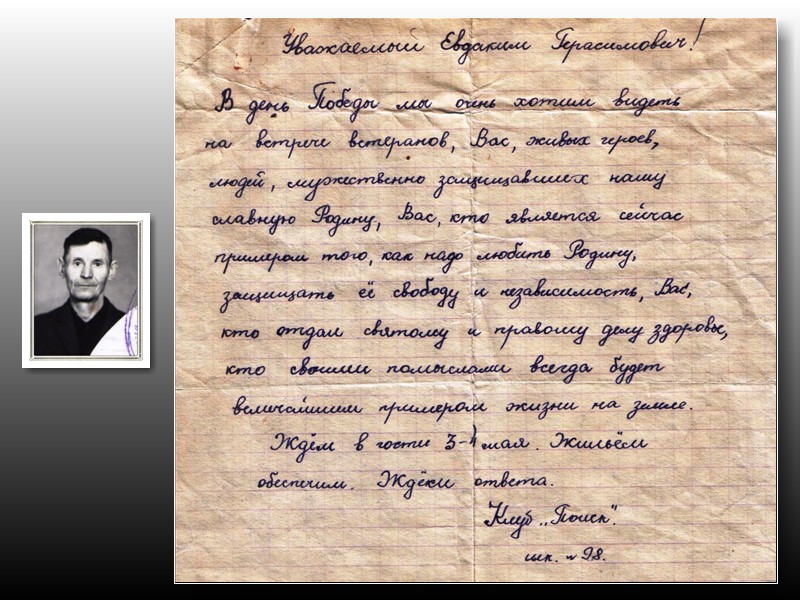 Уважаемый Евдаким Герасимович!
В день Победы мы очень хотим видеть
на встрече ветеранов, Вас, живых героев,
людей, мужественно защищавших нашу
славную Родину, Вас, кто является сейчас
примером того, как надо любить Родину,
защищать её свободу и независимость, Вас,
кто отдал святому и правому делу здоровье,
кто своими помыслами всегда будет
величайшим примером жизни на земле.
Ждём в гости 3-4 мая. Жильём
обеспечим. Ждём ответа.
Клуб „Поиск".
шк. № 98.